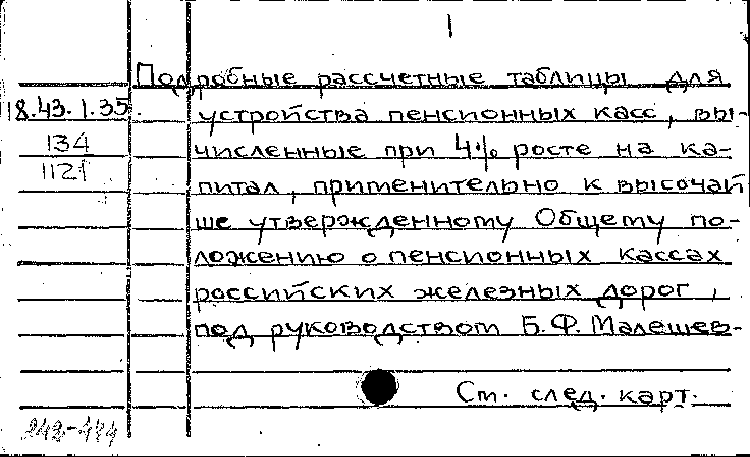 1
Подробные рассчетные таблицы для
18.43.1.35. устройства пенсионных касс, вы-
134 численные при 4% росте на ка-
1121 питал, применительно к высочай
ше утвержденному Общему по-
ложению о пенсионных кассах
российских железных дорог,
под руководством Б.Ф. Малешев-
См. след. карт.